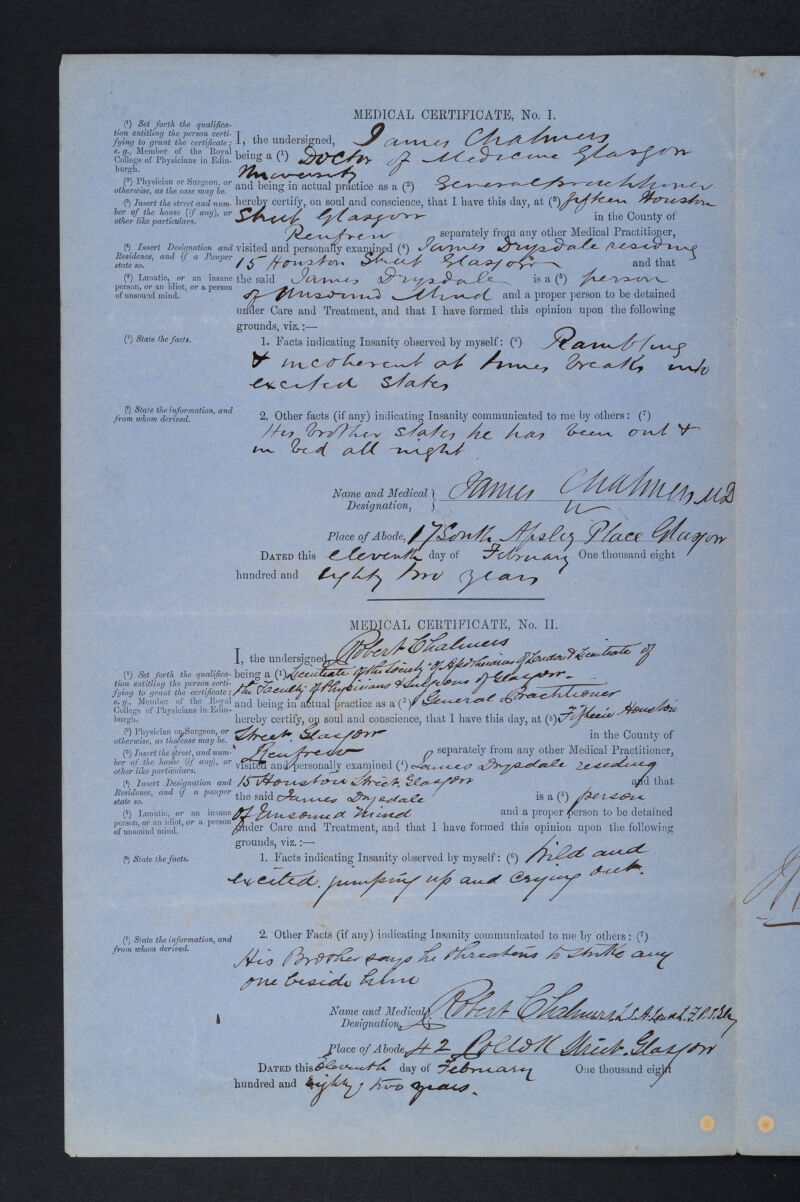 MEDICAL CERTIFICATE, No. I.
(¹) Set forth the qualifica-
tion entitling the person certi-
fying to grant the certificate;
e. g., Member of the Royal
College of Physicians in Edin-
burgh.
(²) Physician or Surgeon, or
otherwise, as the case may be.
(³) Insert the street and num-
ber of the house (if any), or
other like particulars.
(⁴) Insert Designation and
Residence, and if a Pauper
state so.
(⁵) Lunatic, or an insane
person, or an idiot, or a person
of unsound mind.
(⁶) State the facts.
(⁷) State the information, and
from whom derived.
I, the undersigned, James Chalmers
being a (¹) Doctor of Medicine Glasgow
University
and being in actual practice as a (²) General practitioner
hereby certify, on soul and conscience, that I have this day, at (³) fifteen Houston
Street Glasgow in the County of
Renfrew separately from any other Medical Practitioner,
visited and personally examined (⁴) James Drysdale residing
15 Houston Street Glasgow and that
the said James Drysdale is a (⁵) person
of Unsound Mind and a proper person to be detained
under Care and Treatment, and that I have formed this opinion upon the following
grounds, viz.:—
1. Facts indicating Insanity observed by myself: (⁶) Rambling
& incoherent at times breaks into
excited states
2. Other facts (if any) indicating Insanity communicated to me by others: (⁷)
His brother states he has been out &
in bed all night
Name and Medical Designation, James Chalmers MD
Place of Abode, 17 South Apsley Place Glasgow
DATED this eleventh day of February One thousand eight
hundred and eighty two years
MEDICAL CERTIFICATE, No. II.
(¹) Set forth the qualifica-
tion entitling the person certi-
fying to grant the certificate;
e. g., Member of the Royal
College of Physicians in Edin-
burgh.
(²) Physician or Surgeon, or
otherwise, as the case may be.
(³) Insert the street, and num-
ber of the house (if any), or
other like particulars.
(⁴) Insert Designation and
Residence, and if a pauper
state so.
(⁵) Lunatic, or an insane
person, or an idiot, or a person
of unsound mind.
(⁶) State the facts.
(⁷) State the information, and
from whom derived.
I, the undersigned, Robert Chalmers
being a (¹) Licentiate of the Society of Apothecaries of London & Licentiate of
the Faculty of Physicians & Surgeons of Glasgow.
and being in actual practice as a (²) General Practitioner
hereby certify, on soul and conscience, that I have this day, at (³) Fifteen Houston
Street Glasgow in the County of
Renfrew separately from any other Medical Practitioner,
visited and personally examined (⁴) James Drysdale residing
15 Houston Street, Glasgow and that
the said James Drysdale is a (⁵) person
of Unsound Mind and a proper person to be detained
under Care and Treatment, and that I have formed this opinion upon the following
grounds, viz.:—
1. Facts indicating Insanity observed by myself: (⁶) Wild and
excited. jumping up and crying out.
2. Other Facts (if any) indicating Insanity communicated to me by others: (⁷)
His Brother says he threatens to strike any
one beside him
Name and Medical Designation, Robert Chalmers,
Place of Abode, 42 Street, Glasgow
DATED this Eleventh day of February One thousand eight
hundred and Eighty two years.